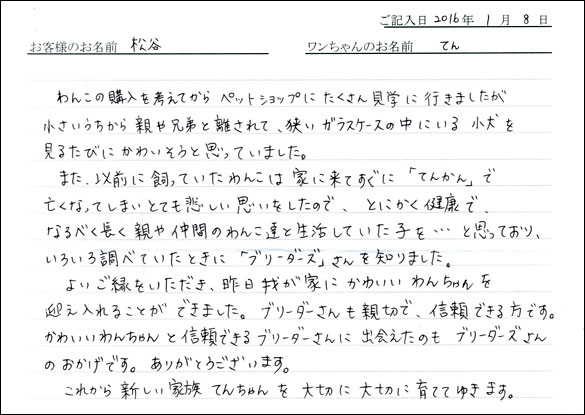 ご記入日 2016年 1月 8日
お客様のお名前 松谷 ワンちゃんのお名前 てん
わんこの購入を考えてから ペットショップに たくさん見学に行きましたが
小さいうちから親や兄弟と離されて、狭いガラスケースの中にいる 小犬を
見るたびにかわいそうと思っていました。
また、以前に飼っていたわんこは 家に来てすぐに「てんかん」で
亡くなってしまいとても悲しい思いをしたので、とにかく健康で、
なるべく長く親や仲間のわんこ達と生活していた子を…と思っており、
いろいろ調べていたときに「ブリーダーズ」さんを知りました。
よいご縁をいただき、昨日我が家に かわいい わんちゃんを
迎え入れることが できました。ブリーダーさんも親切で、信頼できる方です。
かわいいわんちゃんと信頼できるブリーダーさんに出会えたのも ブリーダーズさん
のおかげです。ありがとうございます。
これから新しい家族 てんちゃんを 大切に 大切に育ててゆきます。